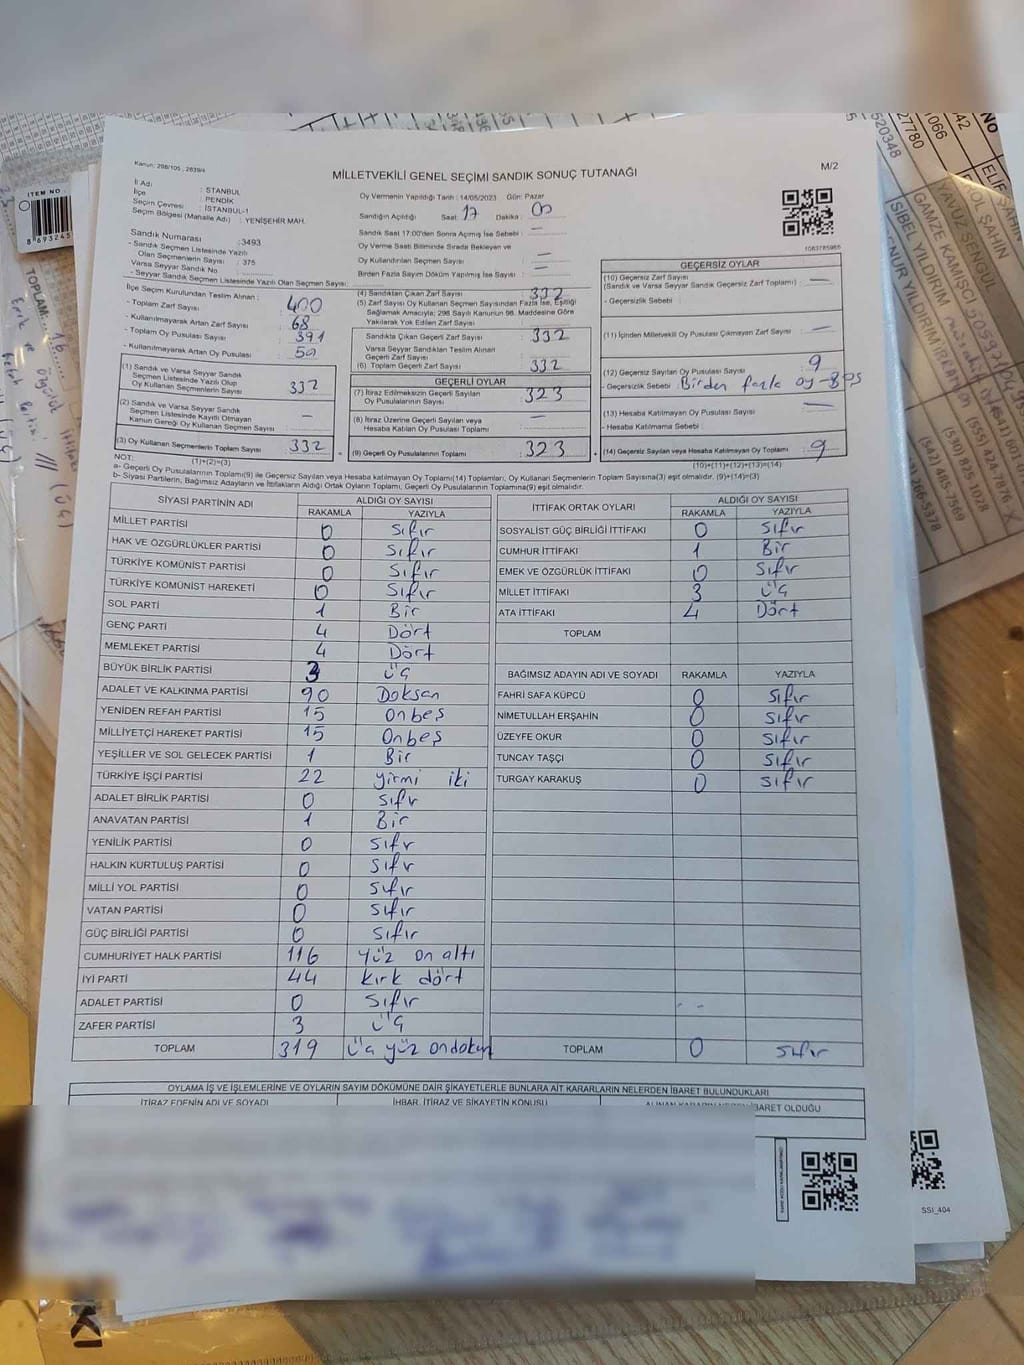 Kanun: 298/105 , 2839/4
MİLLETVEKİLİ GENEL SEÇİMİ SANDIK SONUÇ TUTANAĞI
M/2
İl Adı : İSTANBUL
İlçe : PENDİK
Seçim Çevresi : İSTANBUL-1
Seçim Bölgesi (Mahalle Adı) : YENİŞEHİR MAH.
Oy Vermenin Yapıldığı Tarih : 14/05/2023 Gün: Pazar
Sandığın Açıldığı Saat: 17 Dakika: 00
Sandık Saat 17:00'den Sonra Açılmış İse Sebebi : —
Oy Verme Saati Bitiminde Sırada Bekleyen ve
Oy Kullandırılan Seçmen Sayısı : —
Birden Fazla Sayım Döküm Yapılmış İse Sayısı : —
1083785965
Sandık Numarası :3493
- Sandık Seçmen Listesinde Yazılı
Olan Seçmenlerin Sayısı : 375
Varsa Seyyar Sandık No
- Seyyar Sandık Seçmen Listesinde Yazılı Olan Seçmen Sayısı:
İlçe Seçim Kurulundan Teslim Alınan ;
- Toplam Zarf Sayısı : 400
- Kullanılmayarak Artan Zarf Sayısı : 68
- Toplam Oy Pusulası Sayısı : 391
- Kullanılmayarak Artan Oy Pusulası : 59
(1) Sandık ve Varsa Seyyar Sandık
Seçmen Listesinde Yazılı Olup
Oy Kullanan Seçmenlerin Sayısı : 332
(2) Sandık ve Varsa Seyyar Sandık
Seçmen Listesinde Kayıtlı Olmayan
Kanun Gereği Oy Kullanan Seçmen Sayısı : —
(3) Oy Kullanan Seçmenlerin Toplam Sayısı : 332
(1)+(2)=(3)
(4) Sandıktan Çıkan Zarf Sayısı : 332
(5) Zarf Sayısı Oy Kullanan Seçmen Sayısından Fazla İse, Eşitliği
Sağlamak Amacıyla; 298 Sayılı Kanunun 98. Maddesine Göre
Yakılarak Yok Edilen Zarf Sayısı :
Sandıkta Çıkan Geçerli Zarf Sayısı : 332
Varsa Seyyar Sandıktan Teslim Alınan
Geçerli Zarf Sayısı :
(6) Toplam Geçerli Zarf Sayısı : 332
GEÇERLİ OYLAR
(7) İtiraz Edilmeksizin Geçerli Sayılan
Oy Pusulalarının Sayısı : 323
(8) İtiraz Üzerine Geçerli Sayılan veya
Hesaba Katılan Oy Pusulası Toplamı : —
(9) Geçerli Oy Pusulalarının Toplamı : 323
GEÇERSİZ OYLAR
(10) Geçersiz Zarf Sayısı
(Sandık ve Varsa Seyyar Sandık Geçersiz Zarf Toplamı) : —
- Geçersizlik Sebebi :
(11) İçinden Milletvekili Oy Pusulası Çıkmayan Zarf Sayısı : —
(12) Geçersiz Sayılan Oy Pusulası Sayısı : 9
- Geçersizlik Sebebi : Birden fazla oy-Boş
(13) Hesaba Katılmayan Oy Pusulası Sayısı : —
- Hesaba Katılmama Sebebi :
(14) Geçersiz Sayılan veya Hesaba Katılmayan Oy Toplamı : 9
(10)+(11)+(12)+(13)=(14)
NOT:
a- Geçerli Oy Pusulalarının Toplamı(9) ile Geçersiz Sayılan veya Hesaba Katılmayan Oy Toplamı(14) Toplamları, Oy Kullanan Seçmenlerin Toplam Sayısına(3) eşit olmalıdır, (9)+(14)=(3)
b- Siyasi Partilerin, Bağımsız Adayların ve İttifakların Aldığı Ortak Oyların Toplamı, Geçerli Oy Pusulalarının Toplamına(9) eşit olmalıdır.
SİYASİ PARTİNİN ADI ALDIĞI OY SAYISI
RAKAMLA YAZIYLA
MİLLET PARTİSİ 0 Sıfır
HAK VE ÖZGÜRLÜKLER PARTİSİ 0 Sıfır
TÜRKİYE KOMÜNİST PARTİSİ 0 Sıfır
TÜRKİYE KOMÜNİST HAREKETİ 0 Sıfır
SOL PARTİ 1 Bir
GENÇ PARTİ 4 Dört
MEMLEKET PARTİSİ 4 Dört
BÜYÜK BİRLİK PARTİSİ 3 Üç
ADALET VE KALKINMA PARTİSİ 90 Doksan
YENİDEN REFAH PARTİSİ 15 Onbeş
MİLLİYETÇİ HAREKET PARTİSİ 15 Onbeş
YEŞİLLER VE SOL GELECEK PARTİSİ 1 Bir
TÜRKİYE İŞÇİ PARTİSİ 22 yirmi iki
ADALET BİRLİK PARTİSİ 0 Sıfır
ANAVATAN PARTİSİ 1 Bir
YENİLİK PARTİSİ 0 Sıfır
HALKIN KURTULUŞ PARTİSİ 0 Sıfır
MİLLİ YOL PARTİSİ 0 Sıfır
VATAN PARTİSİ 0 Sıfır
GÜÇ BİRLİĞİ PARTİSİ 0 Sıfır
CUMHURİYET HALK PARTİSİ 116 Yüz on altı
İYİ PARTİ 44 kırk dört
ADALET PARTİSİ 0 Sıfır
ZAFER PARTİSİ 3 Üç
TOPLAM 319 Üç yüz ondokuz
İTTİFAK ORTAK OYLARI ALDIĞI OY SAYISI
RAKAMLA YAZIYLA
SOSYALİST GÜÇ BİRLİĞİ İTTİFAKI 0 Sıfır
CUMHUR İTTİFAKI 1 Bir
EMEK VE ÖZGÜRLÜK İTTİFAKI 0 Sıfır
MİLLET İTTİFAKI 3 Üç
ATA İTTİFAKI 4 Dört
TOPLAM
BAĞIMSIZ ADAYIN ADI VE SOYADI RAKAMLA YAZIYLA
FAHRİ SAFA KÜPCÜ 0 Sıfır
NİMETULLAH ERŞAHİN 0 Sıfır
ÜZEYFE OKUR 0 Sıfır
TUNCAY TAŞÇI 0 Sıfır
TURGAY KARAKUŞ 0 Sıfır
TOPLAM 0 Sıfır
OYLAMA İŞ VE İŞLEMLERİNE VE OYLARIN SAYIM DÖKÜMÜNE DAİR ŞİKAYETLERLE BUNLARA AİT KARARLARIN NELERDEN İBARET BULUNDUKLARI
İTİRAZ EDENİN ADI VE SOYADI İHBAR, İTİRAZ VE ŞİKAYETİN KONUSU
SSİ_404
ITEM NO
TOPLAM
16